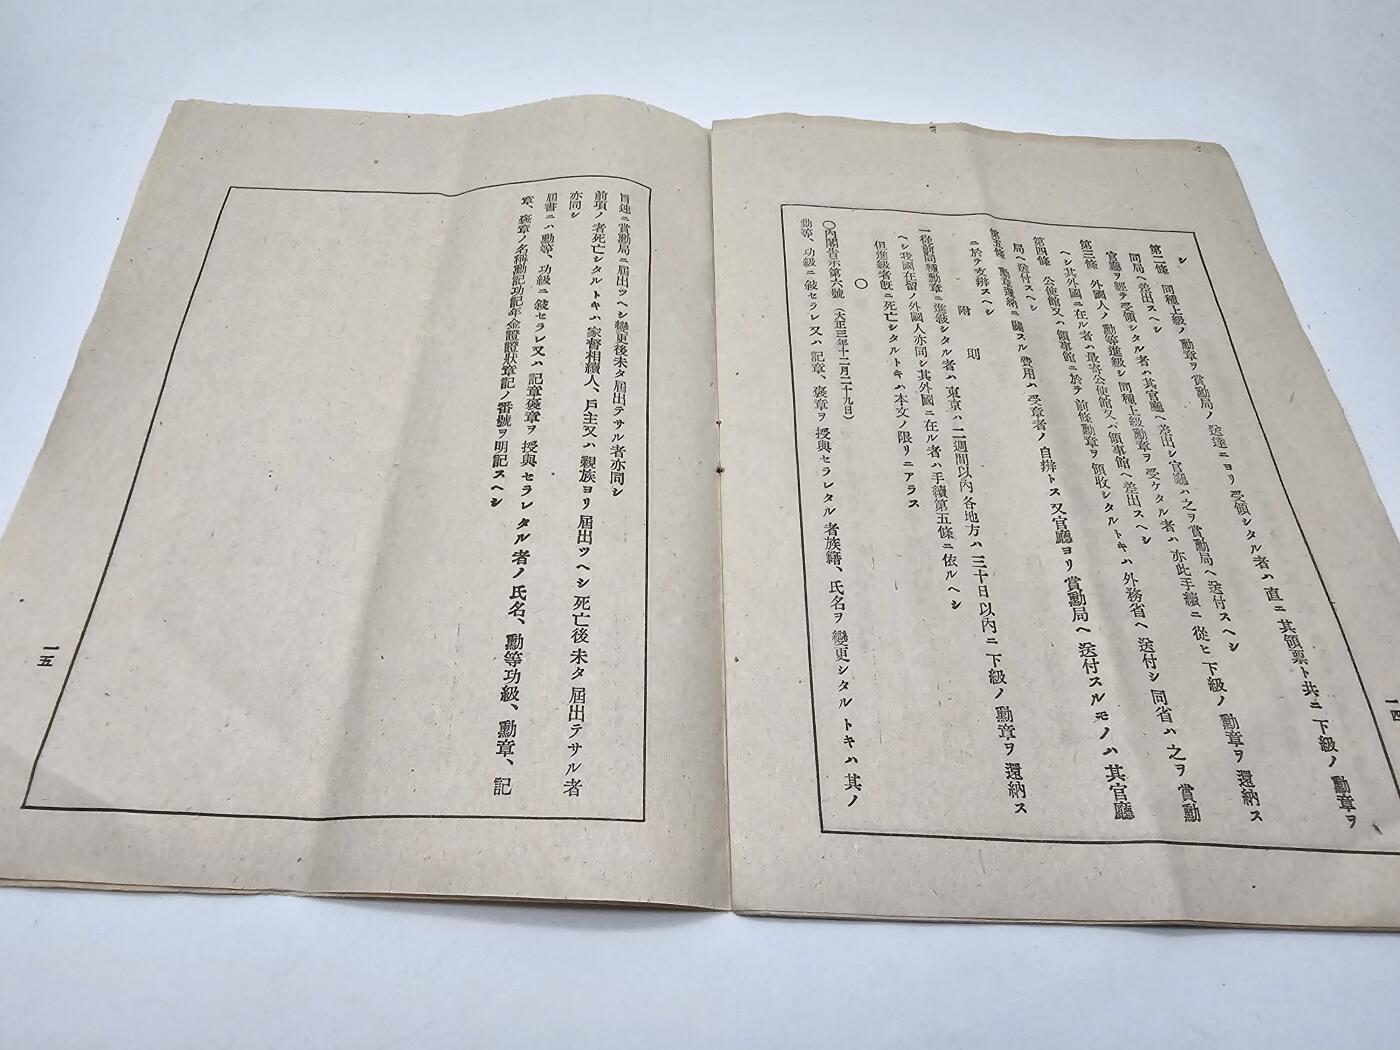 シ
第二條 同種上級ノ勳章ヲ賞勳局ノ送達ニヨリ受領シタル者ハ直ニ其領票ト共ニ下級ノ勳章ヲ
同局ヘ差出スヘシ
官廳ヲ經テ受領シタル者ハ其官廳ヘ差出シ官廳ハ之ヲ賞勳局ヘ送付スヘシ
第三條 外國人ノ勳等進級シ同種上級勳章ヲ受ケタル者ハ亦此手續ニ從ヒ下級ノ勳章ヲ還納ス
ヘシ其外國ニ在ル者ハ最寄公使館又ハ領事館ヘ差出スヘシ
第四條 公使館又ハ領事館ニ於テ前條勳章ヲ領收シタルトキハ外務省ヘ送付シ同省ハ之ヲ賞勳
局ヘ送付スヘシ
第五條 勳章還納ニ關スル費用ハ受章者ノ自辨トス又官廳ヨリ賞勳局ヘ送付スルモノハ其官廳
ニ於テ支辨スヘシ
附則
一從前同種勳章ニ進級シタル者ハ東京ハ二週間以內各地方ハ三十日以內ニ下級ノ勳章ヲ還納ス
ヘシ我國在留ノ外國人亦同シ其外國ニ在ル者ハ手續第五條ニ依ルヘシ
但進級者旣ニ死亡シタルトキハ本文ノ限リニアラス
○
○內閣吿示第六號(大正三年十二月二十九日)
勳等、功級ニ敍セラレ又ハ記章、褒章ヲ授與セラレタル者族籍、氏名ヲ變更シタルトキハ其ノ
一四
旨速ニ賞勳局ニ屆出ツヘシ變更後未タ屆出テサル者亦同シ
前項ノ者死亡シタルトキハ家督相續人、戶主又ハ親族ヨリ屆出ツヘシ死亡後未タ屆出テサル者
亦同シ
屆書ニハ勳等、功級ニ敍セラレ又ハ記章褒章ヲ授與セラレタル者ノ氏名、勳等功級、勳章、記
章、褒章ノ名稱勳記功記年金證證狀章記ノ番號ヲ明記スヘシ
一五